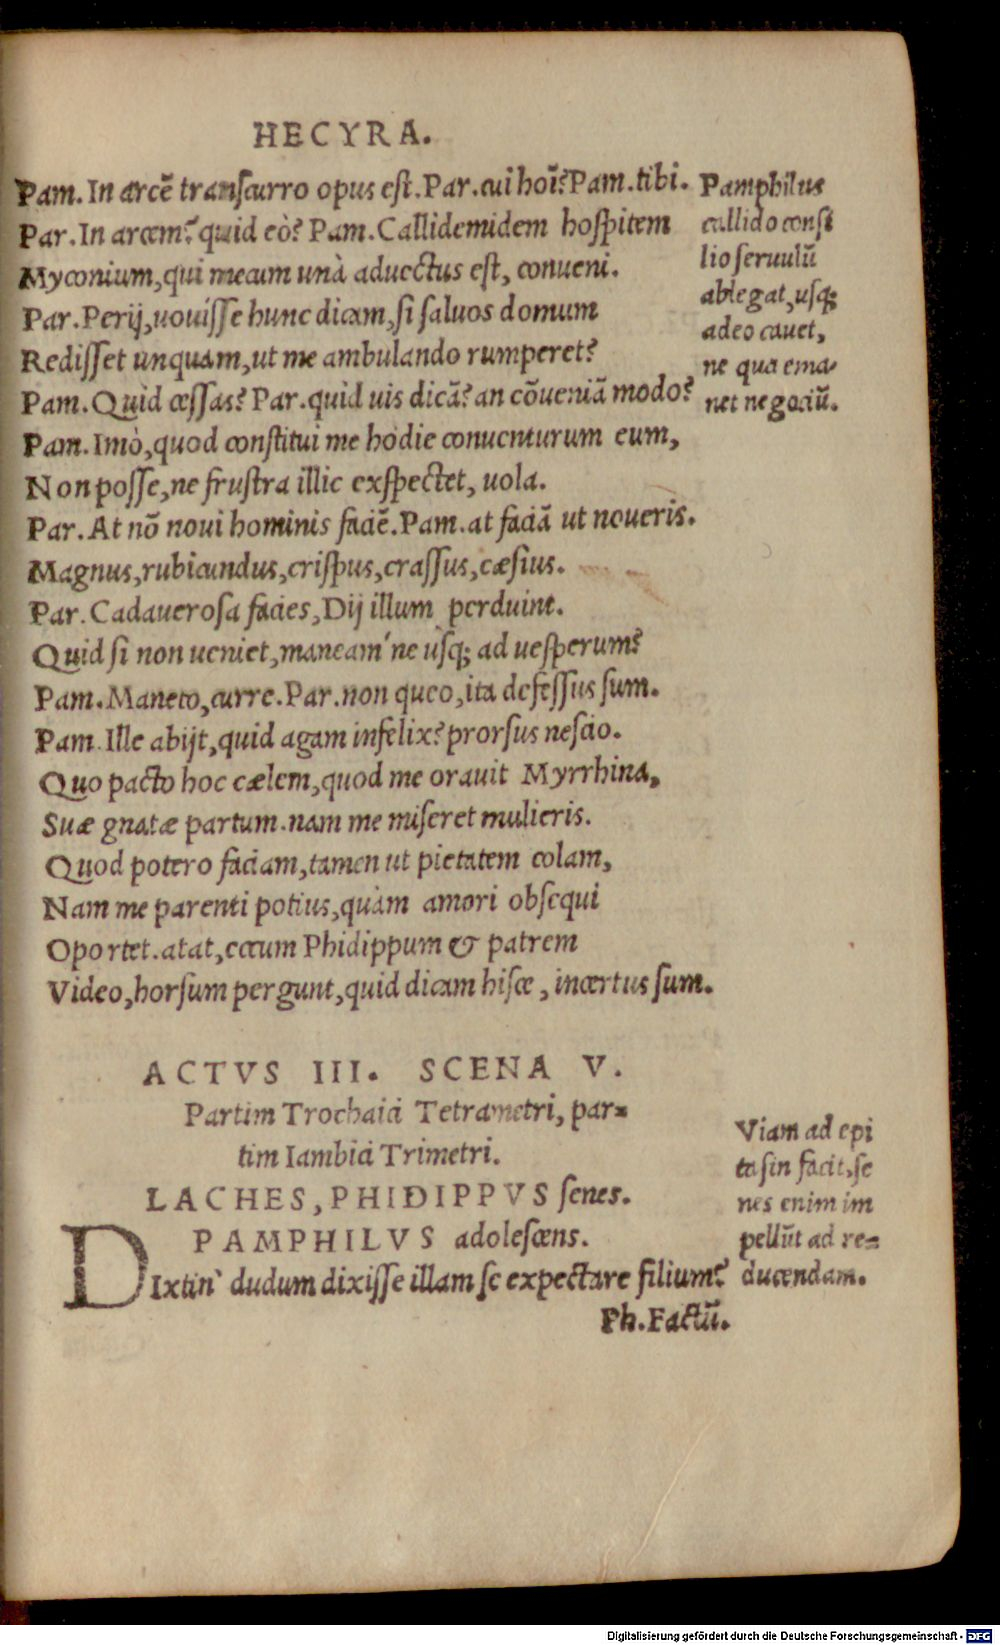 HECYRA.
Pam. In arcẽ transcurro opus est. Par. cui hoĩ? Pam. tibi.
Par. In arcem? quid eò? Pam. Callidemidem hospitem
Myconium, qui mecum unà aduectus est, conueni.
Par. Perij, uouisse hunc dicam, si saluos domum
Redisset unquam, ut me ambulando rumperet?
Pam. Quid cessas? Par. quid uis dicã? an cõueniã modo?
Pam. Imò, quod constitui me hodie conuenturum eum,
Non posse, ne frustra illic exspectet, uola.
Par. At nõ noui hominis faciẽ. Pam. at faciã ut noueris.
Magnus, rubicundus, crispus, crassus, cæsius.
Par. Cadauerosa facies, Dij illum perduint.
Quid si non ueniet, maneam'ne usq; ad uesperum?
Pam. Maneto, curre. Par. non queo, ita defessus sum.
Pam. Ille abijt, quid agam infelix? prorsus nescio.
Quo pacto hoc cælem, quod me orauit Myrrhina,
Suæ gnatæ partum. nam me miseret mulieris.
Quod potero faciam, tamen ut pietatem colam,
Nam me parenti potius, quàm amori obsequi
Oportet. atat, eccum Phidippum & patrem
Video, horsum pergunt, quid dicam hisce, incertus sum.
Pamphilus
callido consi
lio seruulũ
ablegat, usq;
adeo cauet,
ne qua ema-
net negociũ.
ACTVS III. SCENA V.
Partim Trochaici Tetrametri, par=
tim Iambici Trimetri.
LACHES, PHIDIPPVS senes.
PAMPHILVS adolescens.
DIxtin' dudum dixisse illam se expectare filium?
Ph. Factũ.
Viam ad epi
tasin facit, se
nes enim im
pellũt ad re=
ducendam.
Digitalisierung gefördert durch die Deutsche Forschungsgemeinschaft - DFG